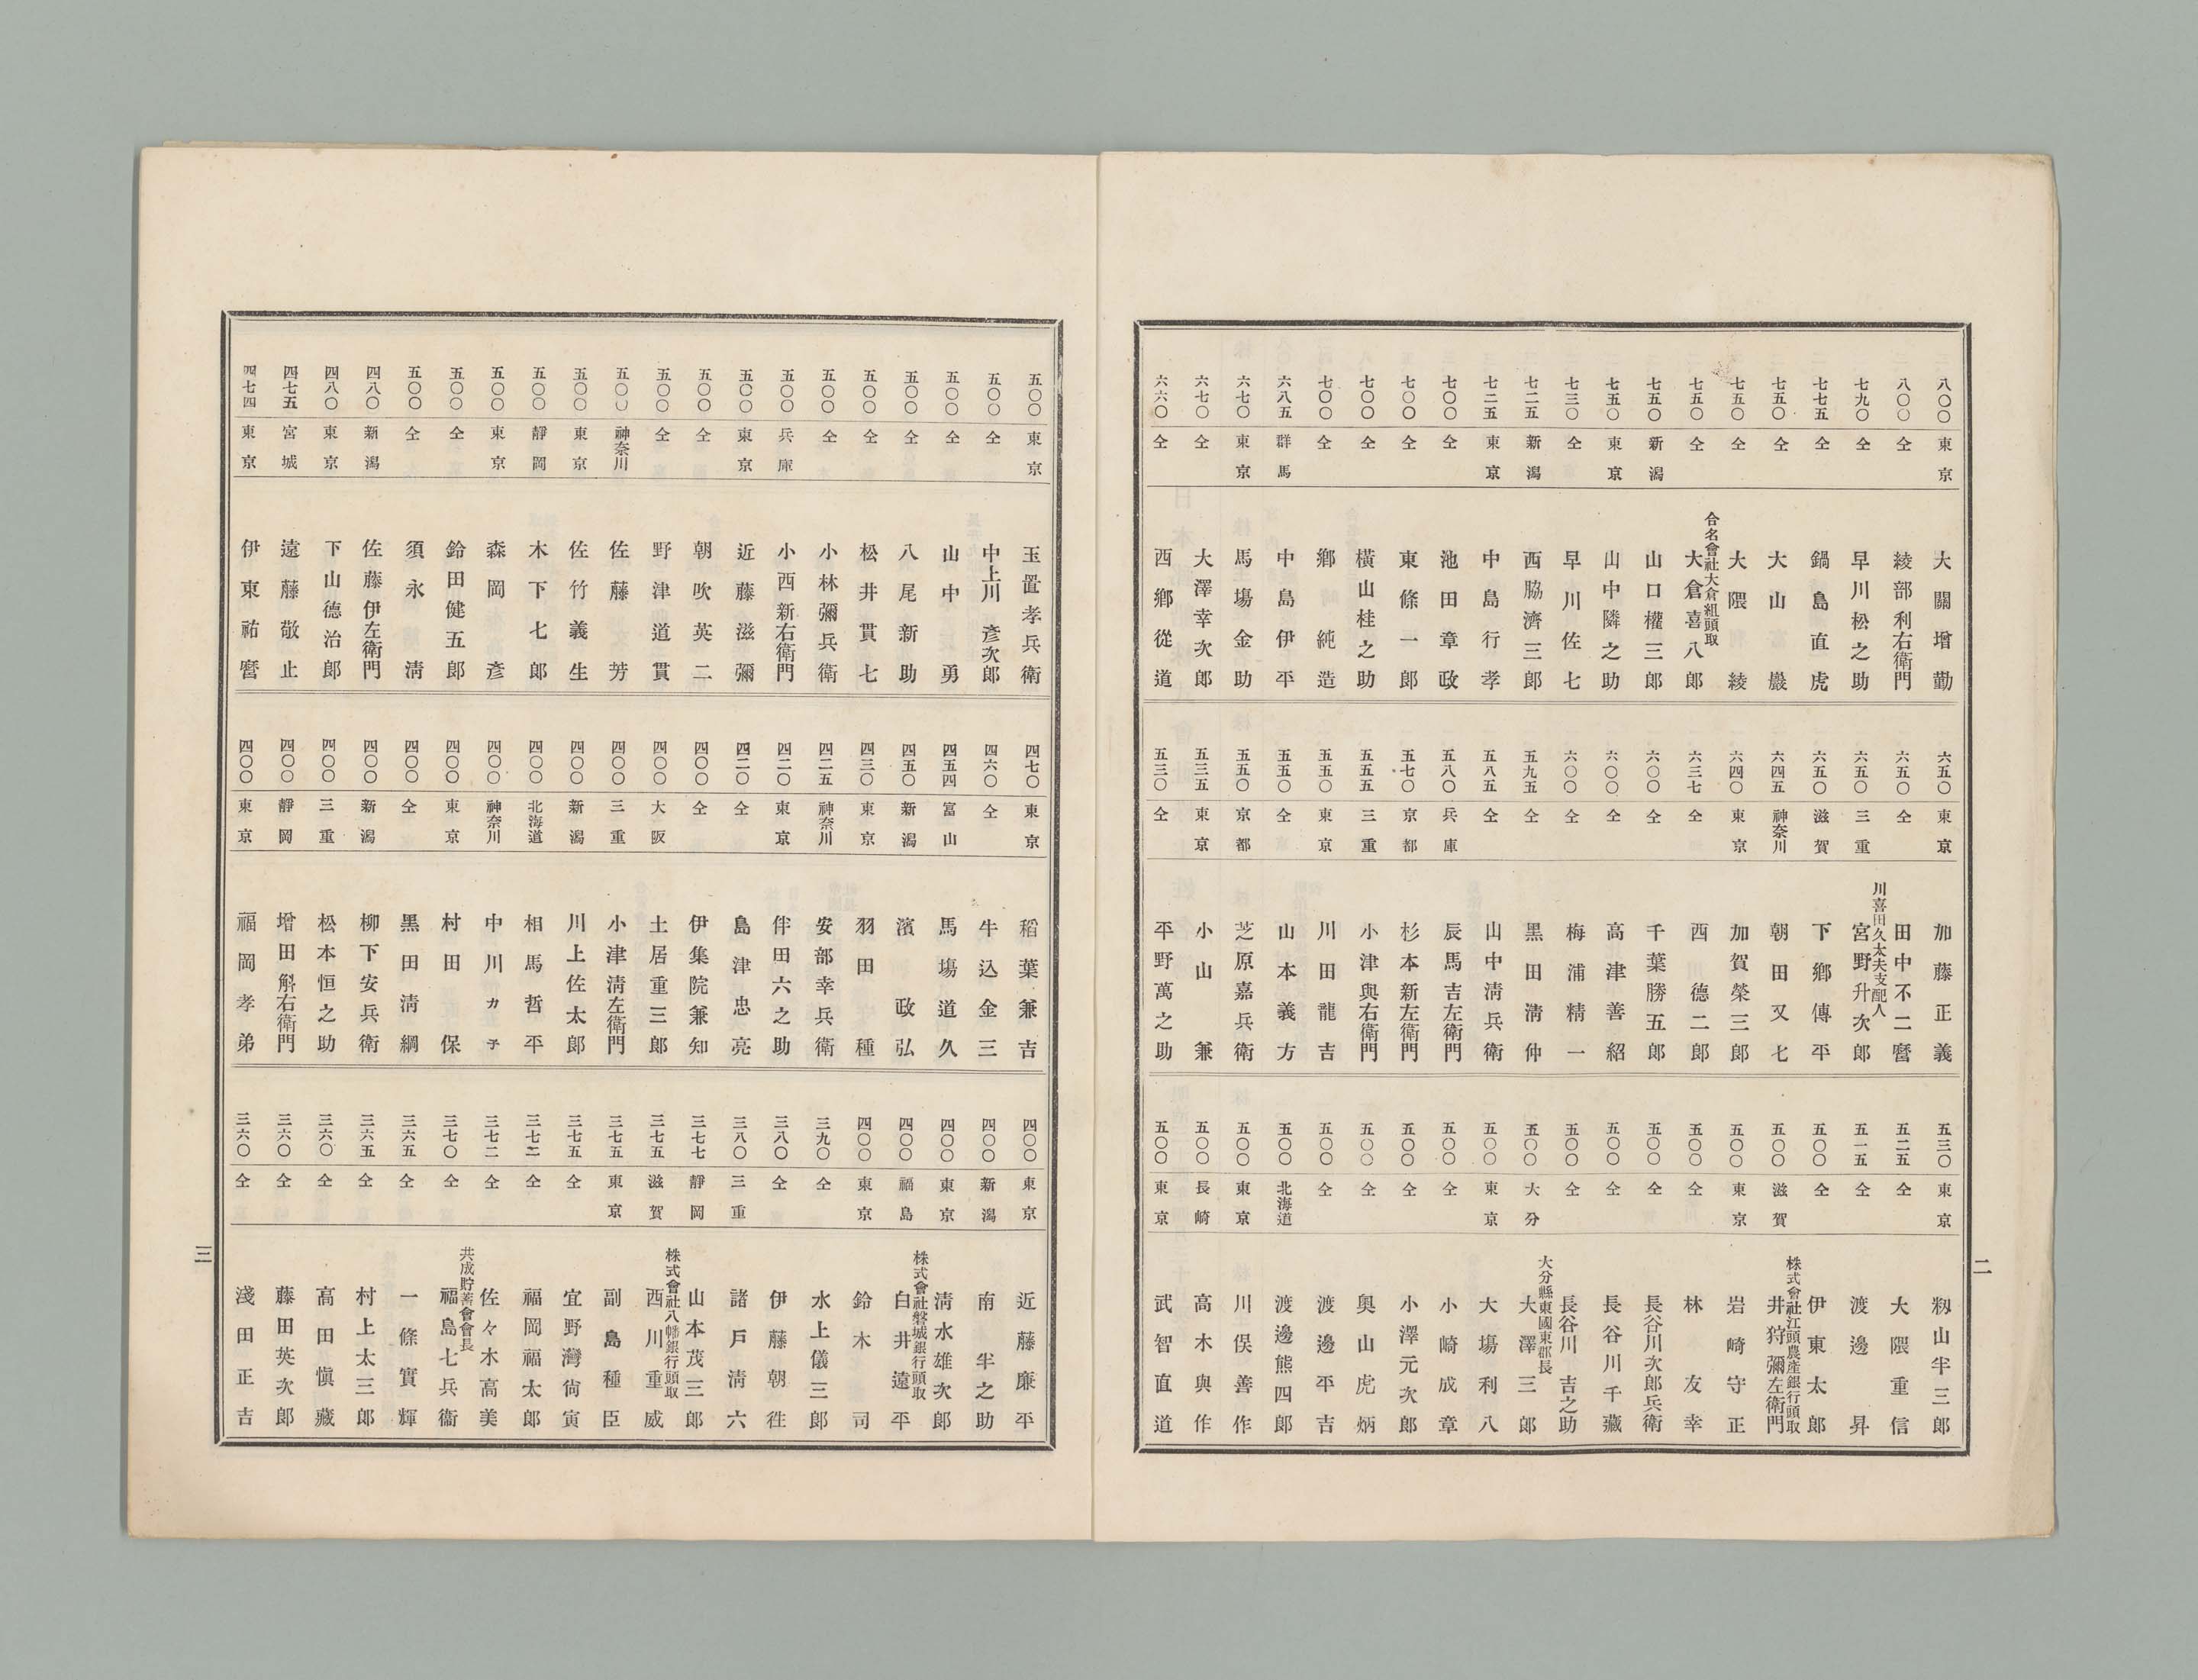 二
八〇〇 東京 大關增勤
八〇〇 仝 綾部利右衞門
七九〇 仝 早川松之助
七七五 仝 鍋島直虎
七五〇 仝 大山巖
七五〇 仝 大隈綾
七五〇 仝 合名會社大倉組頭取 大倉喜八郎
七五〇 新潟 山口權三郎
七五〇 東京 山中隣之助
七三〇 仝 早川佐七
七二五 新潟 西脇濟三郎
七二五 東京 中島行孝
七〇〇 仝 池田章政
七〇〇 仝 東條一郎
七〇〇 仝 橫山桂之助
七〇〇 仝 鄕純造
六八五 群馬 中島伊平
六七〇 東京 馬塲金助
六七〇 仝 大澤幸次郎
六六〇 仝 西鄕從道
六五〇 東京 加藤正義
六五〇 仝 田中不二麿
六五〇 三重 川喜田久太夫支配人 宮野升次郎
六五〇 滋賀 下鄕傳平
六四五 神奈川 朝田又七
六四〇 東京 加賀榮三郎
六三七 仝 西德二郎
六〇〇 仝 千葉勝五郎
六〇〇 仝 高津善紹
六〇〇 仝 梅浦精一
五九五 仝 黑田淸仲
五八五 仝 山中淸兵衞
五八〇 兵庫 辰馬吉左衞門
五七〇 京都 杉本新左衞門
五五五 三重 小津與右衞門
五五〇 東京 川田龍吉
五五〇 仝 山本義方
五五〇 京都 芝原嘉兵衞
五三五 東京 小山兼
五三〇 仝 平野萬之助
五三〇 東京 籾山半三郎
五二五 仝 大隈重信
五一五 仝 渡邊昇
五〇〇 仝 伊東太郎
五〇〇 滋賀 株式會社江頭農產銀行頭取 井狩彌左衞門
五〇〇 東京 岩崎守正
五〇〇 仝 林友幸
五〇〇 仝 長谷川次郎兵衞
五〇〇 仝 長谷川千藏
五〇〇 仝 長谷川吉之助
五〇〇 大分 大分縣東國東郡長 大澤三郎
五〇〇 東京 大塲利八
五〇〇 仝 小崎成章
五〇〇 仝 小澤元次郎
五〇〇 仝 奧山虎炳
五〇〇 仝 渡邊平吉
五〇〇 北海道 渡邊熊四郎
五〇〇 東京 川俣善作
五〇〇 長崎 高木與作
五〇〇 東京 武智直道
五〇〇 東京 玉置孝兵衞
五〇〇 仝 中上川彥次郎
五〇〇 仝 山中勇
五〇〇 仝 八尾新助
五〇〇 仝 松井貫七
五〇〇 仝 小林彌兵衞
五〇〇 兵庫 小西新右衞門
五〇〇 東京 近藤滋彌
五〇〇 仝 朝吹英二
五〇〇 仝 野津道貫
五〇〇 神奈川 佐藤芳
五〇〇 東京 佐竹義生
五〇〇 靜岡 木下七郎
五〇〇 東京 森岡彥
五〇〇 仝 鈴田健五郎
五〇〇 仝 須永淸
四八〇 新潟 佐藤伊左衞門
四八〇 東京 下山德治郎
四七五 宮城 遠藤敬止
四七四 東京 伊東祐麿
四七〇 東京 稻葉兼吉
四六〇 仝 牛込金三
四五四 富山 馬塲道久
四五〇 新潟 濱政弘
四三〇 東京 羽田種
四二五 神奈川 安部幸兵衞
四二〇 東京 伴田六之助
四二〇 仝 島津忠亮
四〇〇 仝 伊集院兼知
四〇〇 大阪 土居重三郎
四〇〇 三重 小津淸左衞門
四〇〇 新潟 川上佐太郎
四〇〇 北海道 相馬哲平
四〇〇 神奈川 中川カチ
四〇〇 東京 村田保
四〇〇 仝 黑田淸綱
四〇〇 新潟 柳下安兵衞
四〇〇 三重 松本恒之助
四〇〇 靜岡 增田斛右衞門
四〇〇 東京 福岡孝弟
四〇〇 東京 近藤廉平
四〇〇 新潟 南半之助
四〇〇 東京 淸水雄次郎
四〇〇 福島 株式會社磐城銀行頭取 白井遠平
四〇〇 東京 鈴木司
三九〇 仝 水上儀三郎
三八〇 仝 伊藤朝徃
三八〇 三重 諸戶淸六
三七七 靜岡 山本茂三郎
三七五 滋賀 株式會社八幡銀行頭取 西川重威
三七五 東京 副島種臣
三七五 仝 宜野灣尙寅
三七二 仝 福岡福太郎
三七二 仝 佐々木高美
三七〇 仝 共成貯蓄會會長 福島七兵衞
三六五 仝 一條實輝
三六五 仝 村上太三郎
三六〇 仝 高田愼藏
三六〇 仝 藤田英次郎
三六〇 仝 淺田正吉
三